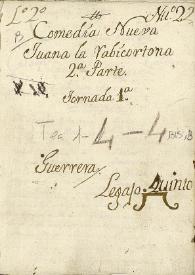 Lº 2º Nº 22
Comedia Nueva
Juana la Rabicortona
2.ª Parte.
Jornada 1.ª
Tea 1-4-4
Guerrera
Legajo Quinto